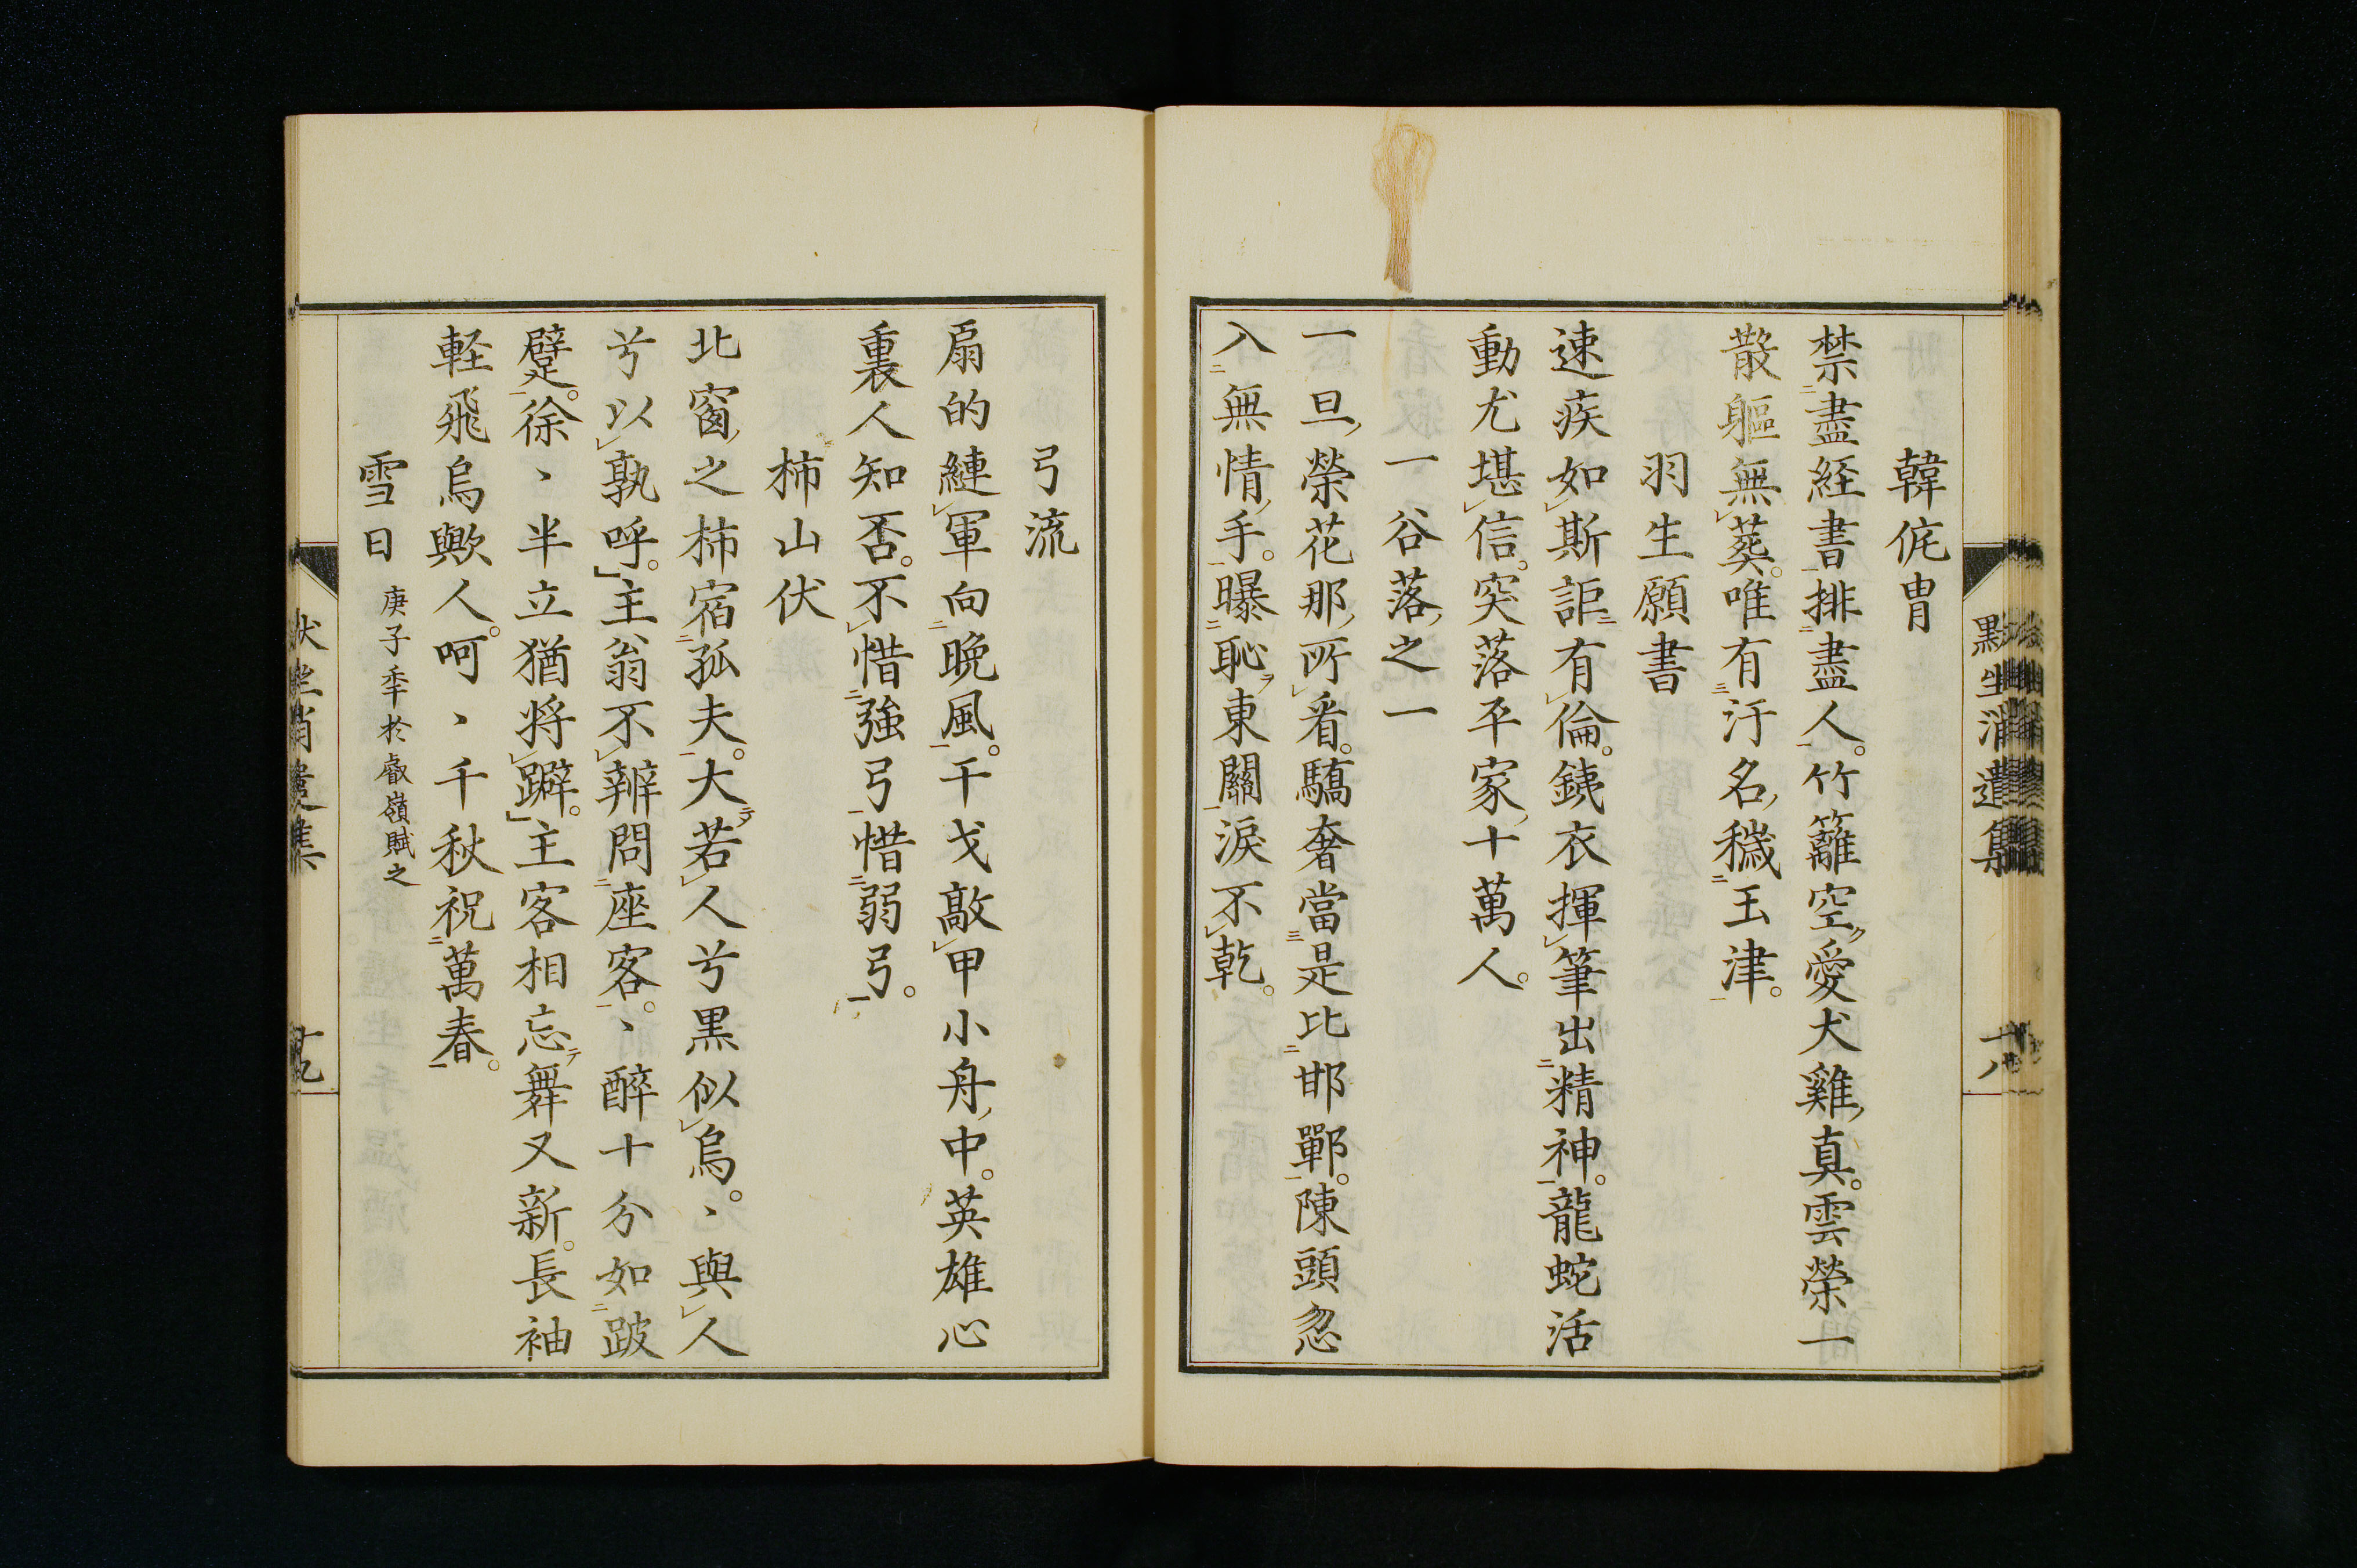 韓侂冑
禁盡経書排盡人竹籬空愛犬雞真雲榮一
散軀無葬唯有汙名穢玉津
羽生願書
速疾如斯詎有倫銕衣揮筆出精神龍蛇活
動尤堪信突落平家十萬人
一谷落之一
一旦榮花那所看驕奢當是比邯鄲陳頭忽
入無情手曝恥東關淚不乾
弓流
扇的縺軍向晩風干戈敵甲小舟中英雄心
裏人知否不惜強弓惜弱弓
柿山伏
北窗之柿宿孤夫大若人兮黒似烏、與人
兮以孰呼主翁不辨問座客、醉十分如跛
躄徐、半立猶将躃主客相忘舞又新長袖
軽飛烏歟人呵、千秋祝萬春
雪日 庚子季於叡嶺賦之